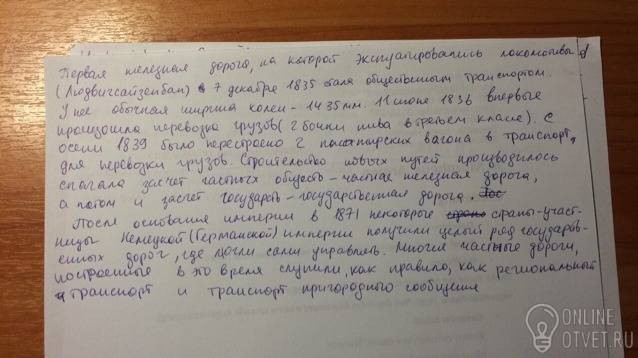 Первая железная дорога, на которой эксплуатировались локомотивы
(Людвигсайзенбан) 7 декабре 1835 стала общественным транспортом.
У нее обычная ширина колеи - 1435 мм. 11 июне 1836 впервые
произошла перевозка грузов (2 бочки пива в третьем классе). С
осени 1839 было перестроено 2 пассажирских вагона в транспорт,
для перевозки грузов. Строительство новых путей производилось
сначала засчет частных обществ - частная железная дорога,
а потом и засчет государств - государственная дорога.
После основания империи в 1871 некоторые страны-участ-
ницы Немецкой (Германской) империи получили целый ряд государств-
енных дорог, где могли сами управлять. Многие частные дороги,
построенные в это время служили, как правило, как региональный
транспорт и транспорт пригородного сообщения
ONLINE
OTVET.RU